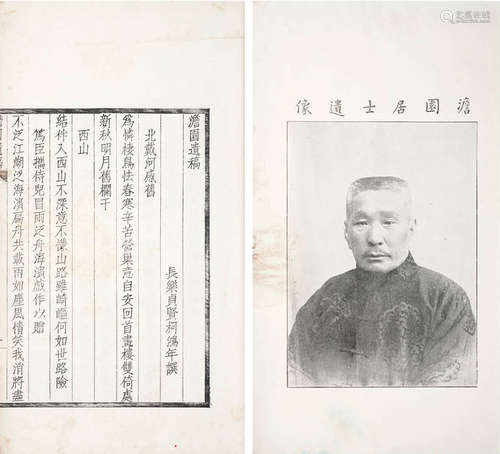 澹園居士遺像
澹園遺稿
長樂貞賢柯鴻年譔
北戴河感舊
為憐棲鳥怯春寒辛苦營巢意自安回首畫樓雙倚處
新秋明月舊欄干
西山
結伴入西山不深意不愜山路雖崎嶇何如世路險
篤臣攜侍兒冒雨泛舟海濱戲作以贈
不泛江湖泛海濱扁舟共載雨如塵風情笑我消將盡